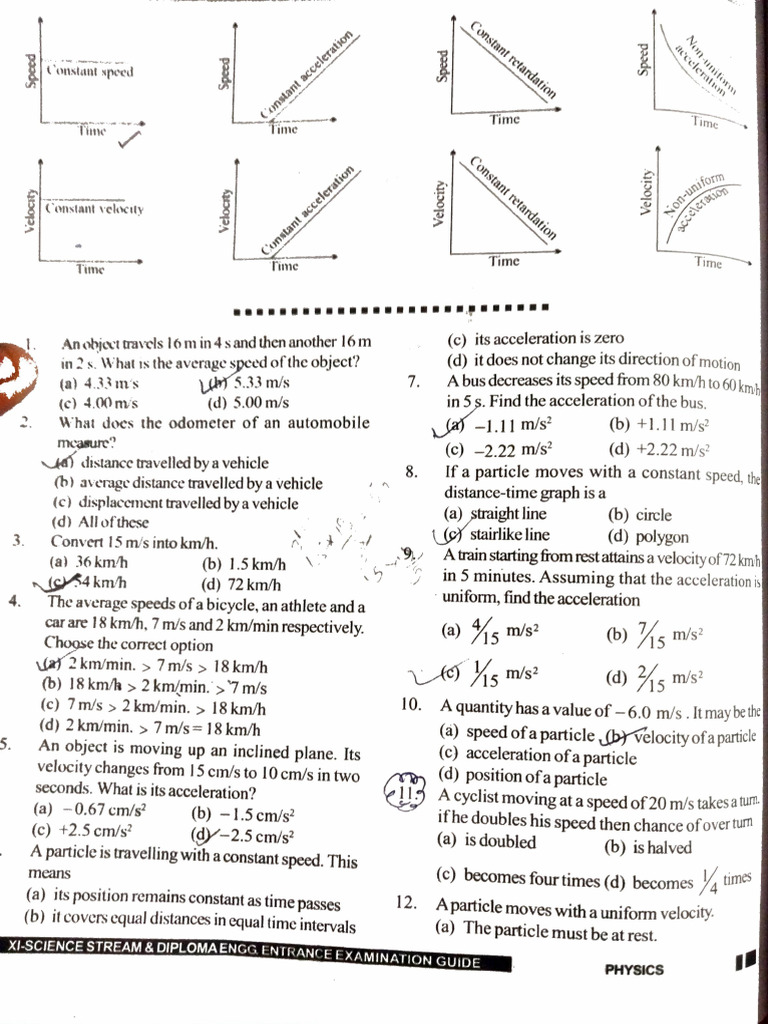 Speed
Constant speed
Time
Speed
Constant acceleration
Time
Speed
Constant retardation
Time
Speed
Non-uniform
acceleration
Time
Velocity
Constant velocity
Time
Velocity
Constant acceleration
Time
Velocity
Constant retardation
Time
Velocity
Non-uniform
acceleration
Time
1. An object travels 16 m in 4 s and then another 16 m
in 2 s. What is the average speed of the object?
(a) 4.33 m/s (b) 5.33 m/s
(c) 4.00 m/s (d) 5.00 m/s
2. What does the odometer of an automobile
measure?
(a) distance travelled by a vehicle
(b) average distance travelled by a vehicle
(c) displacement travelled by a vehicle
(d) All of these
3. Convert 15 m/s into km/h.
(a) 36 km/h (b) 1.5 km/h
(c) 54 km/h (d) 72 km/h
4. The average speeds of a bicycle, an athlete and a
car are 18 km/h, 7 m/s and 2 km/min respectively.
Choose the correct option
(a) 2 km/min. > 7 m/s > 18 km/h
(b) 18 km/h > 2 km/min. > 7 m/s
(c) 7 m/s > 2 km/min. > 18 km/h
(d) 2 km/min. > 7 m/s = 18 km/h
5. An object is moving up an inclined plane. Its
velocity changes from 15 cm/s to 10 cm/s in two
seconds. What is its acceleration?
(a) −0.67 cm/s² (b) −1.5 cm/s²
(c) +2.5 cm/s² (d) −2.5 cm/s²
. A particle is travelling with a constant speed. This
means
(a) its position remains constant as time passes
(b) it covers equal distances in equal time intervals
(c) its acceleration is zero
(d) it does not change its direction of motion
7. A bus decreases its speed from 80 km/h to 60 km/h
in 5 s. Find the acceleration of the bus.
(a) −1.11 m/s² (b) +1.11 m/s²
(c) −2.22 m/s² (d) +2.22 m/s²
8. If a particle moves with a constant speed, the
distance-time graph is a
(a) straight line (b) circle
(c) stairlike line (d) polygon
9. A train starting from rest attains a velocity of 72 km/h
in 5 minutes. Assuming that the acceleration is
uniform, find the acceleration
(a) 4/15 m/s² (b) 7/15 m/s²
(c) 1/15 m/s² (d) 2/15 m/s²
10. A quantity has a value of −6.0 m/s. It may be the
(a) speed of a particle (b) velocity of a particle
(c) acceleration of a particle
(d) position of a particle
11. A cyclist moving at a speed of 20 m/s takes a turn.
if he doubles his speed then chance of over turn
(a) is doubled (b) is halved
(c) becomes four times (d) becomes 1/4 times
12. A particle moves with a uniform velocity.
(a) The particle must be at rest.
XI-SCIENCE STREAM & DIPLOMA ENGG. ENTRANCE EXAMINATION GUIDE
PHYSICS